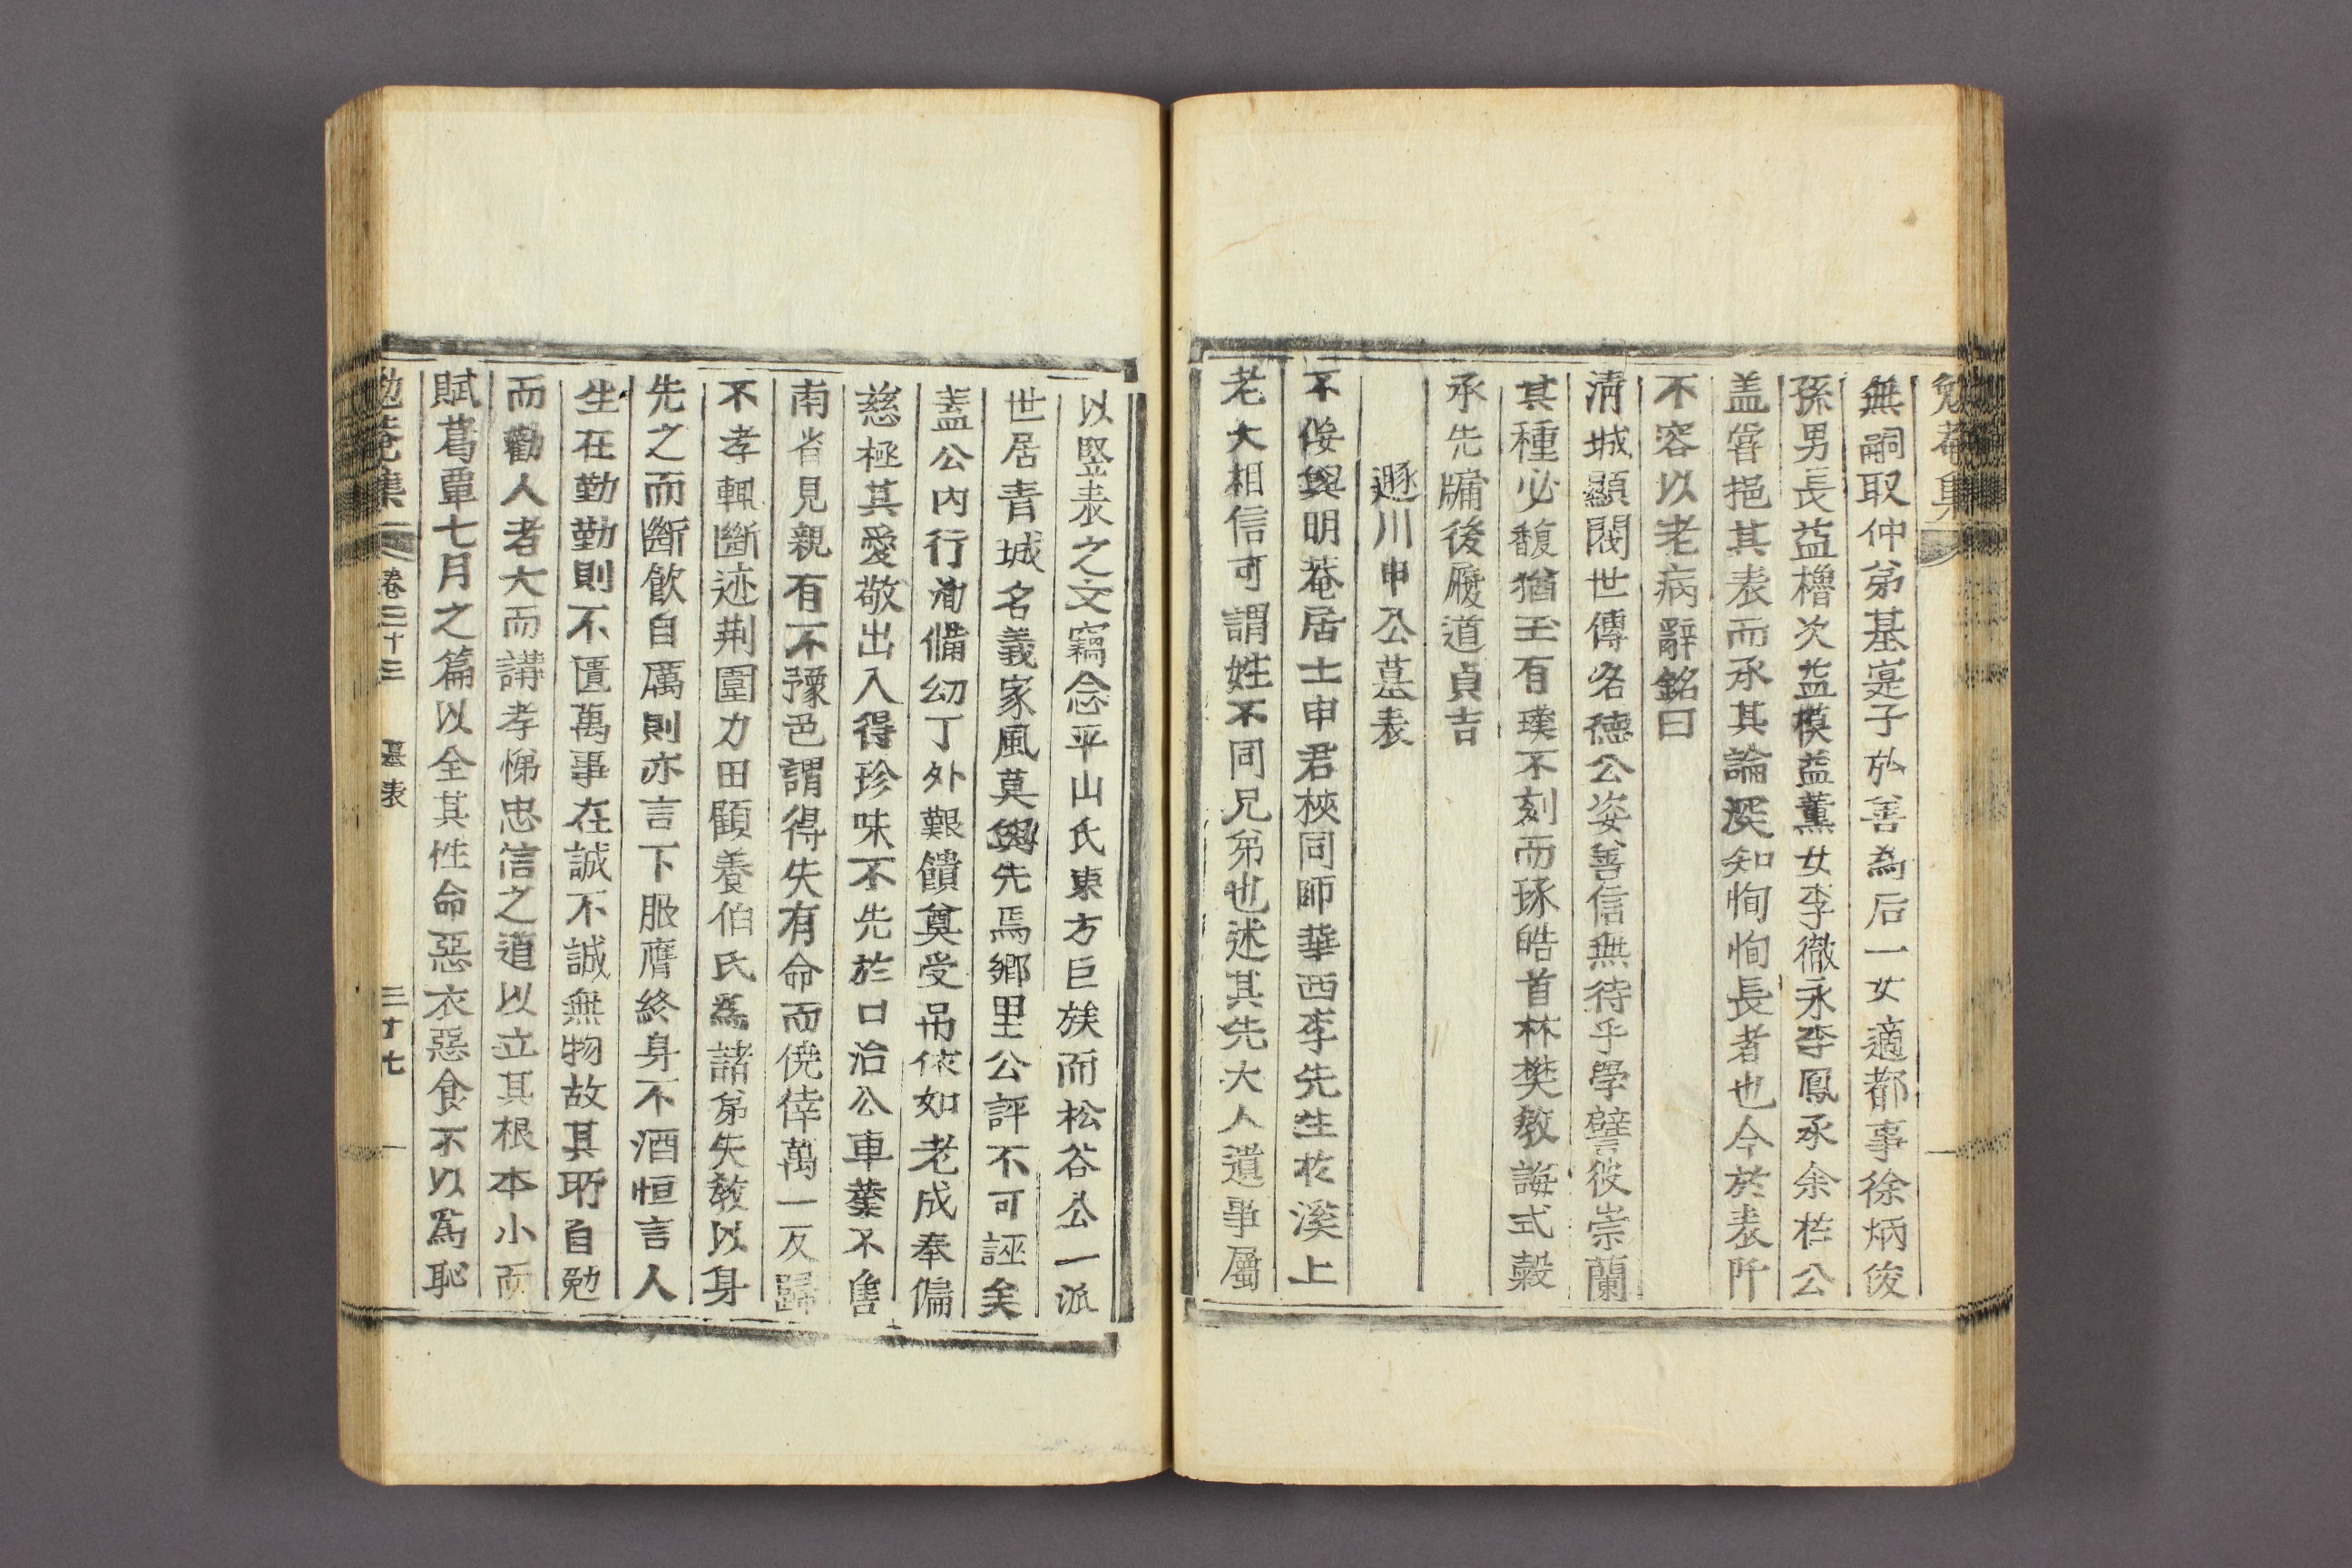 勉菴集
無嗣取仲弟基寔子於善為后一女適都事徐炳俊
孫男長益櫓次益模益薰女李徹永李鳳承余在公
盖甞挹其表而承其論深知恂恂長者也今於表阡
不容以老病辭銘曰
淸城顯閥世傳名德公姿善信無待乎學譬彼崇蘭
其種必馥猶玉有璞不刻而琢皓首林樊敎誨式穀
承先牖後履道貞吉
遯川申公墓表
不佞與明菴居士申君梜同師華西李先生於溪上
老大相信可謂姓不同兄弟也述其先大人遺事屬
以竪表之文竊念平山氏東方巨族而松谷公一派
世居靑城名義家風莫與先焉鄕里公評不可誣矣
蓋公內行洵備幼丁外艱饋奠受吊依如老成奉偏
慈極其愛敬出入得珍味不先於口治公車業不售
南省見親有不豫色謂得失有命而僥倖萬一反歸
不孝輒斷迹荆圍力田顧養伯氏爲諸弟失敎以身
先之而斷飮自厲則亦言下服膺終身不酒恒言人
生在勤勤則不匱萬事在誠不誠無物故其所自勉
而勸人者大而講孝悌忠信之道以立其根本小而
賦葛覃七月之篇以全其性命惡衣惡食不以爲恥
勉菴集 卷三十三 墓表 三十七